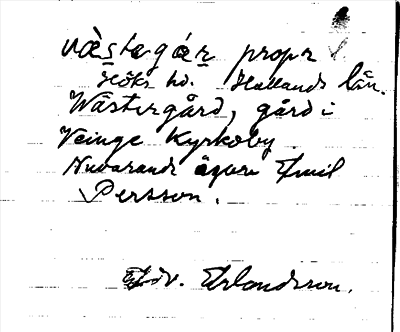 väste gár propr
Höks hd. Hallands län.
Wästergård, gård i
Veinge Kyrkoby.
Nuvarande ägare Emil
Persson.
Edv. Erlandsson.